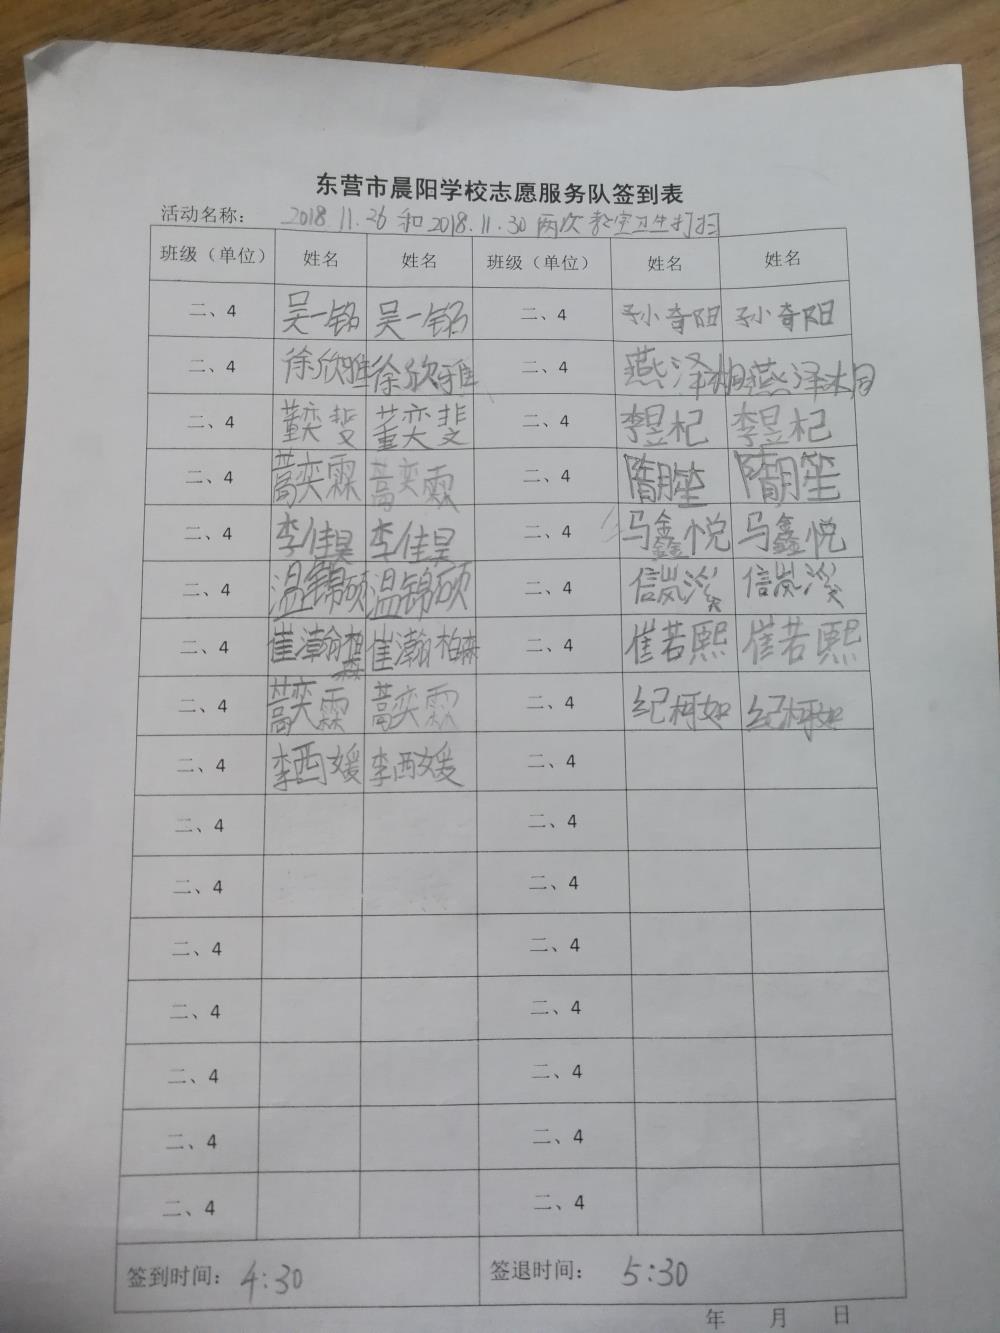 东营市晨阳学校志愿服务队签到表
活动名称： 2018.11.26和2018.11.30两次教室卫生打扫
班级（单位） 姓名 姓名 班级（单位） 姓名 姓名
二、4 吴一铭 吴一铭 二、4 孙奇阳 孙奇阳
二、4 徐欣雅 徐欣雅 二、4 燕泽 燕泽
二、4 董奕 董奕 二、4 李昱杞 李昱杞
二、4 蒿奕霖 蒿奕霖 二、4 隋玥笙 隋玥笙
二、4 李佳昊 李佳昊 二、4 马鑫悦 马鑫悦
二、4 温锦硕 温锦硕 二、4 信岚溪 信岚溪
二、4 崔瀚柏森 崔瀚柏森 二、4 崔若熙 崔若熙
二、4 蒿奕霖 蒿奕霖 二、4 纪柯如 纪柯如
二、4 李西媛 李西媛 二、4
二、4 二、4
二、4 二、4
二、4 二、4
二、4 二、4
二、4 二、4
二、4 二、4
二、4 二、4
签到时间：4:30 签退时间： 5:30
年 月 日